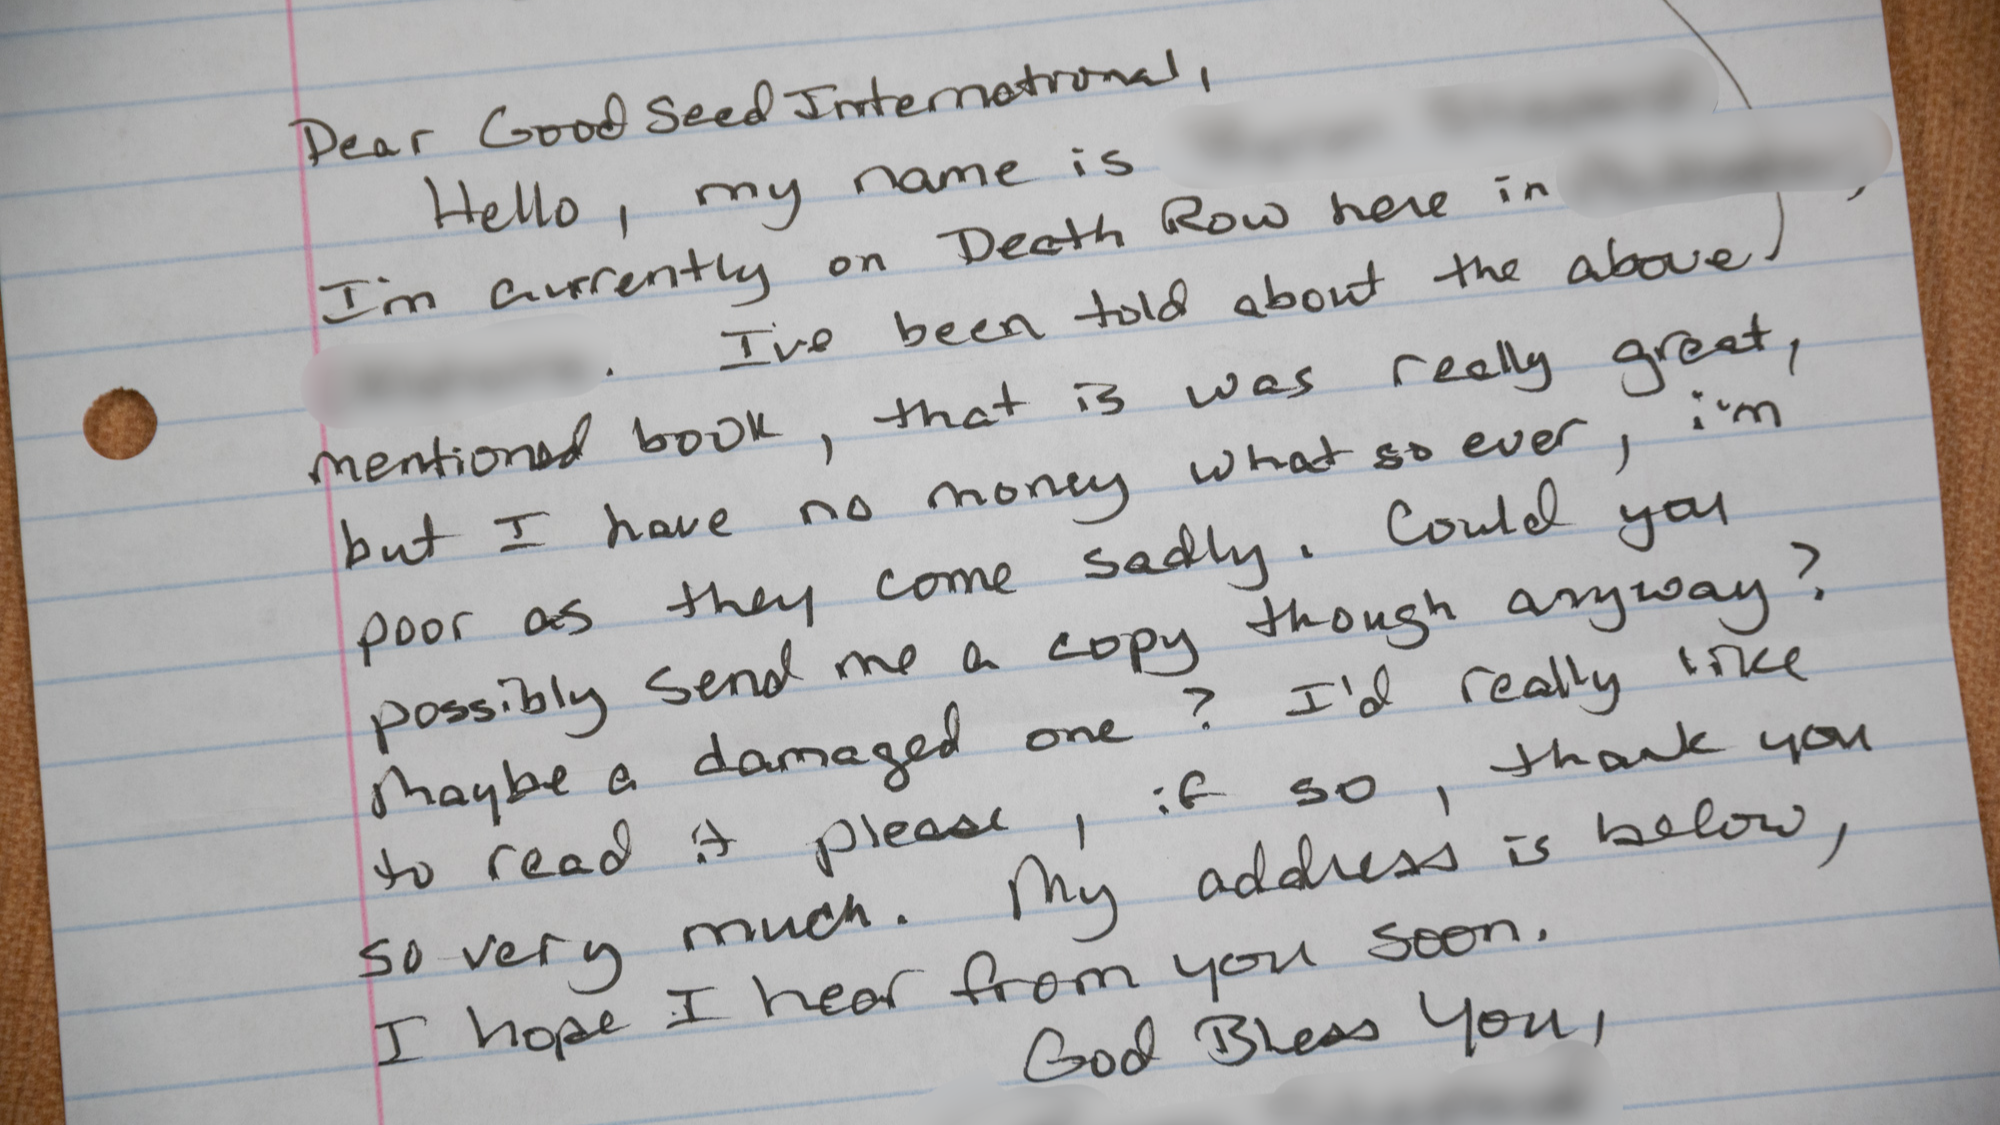 Dear Good Seed International,
Hello, my name is
I'm currently on Death Row here in ,
. I've been told about the above
mentioned book, that is was really great,
but I have no money what so ever, i'm
poor as they come sadly. Could you
possibly send me a copy though anyway?
Maybe a damaged one? I'd really like
to read it please, if so, thank you
so very much. My address is below,
I hope I hear from you soon.
God Bless You,